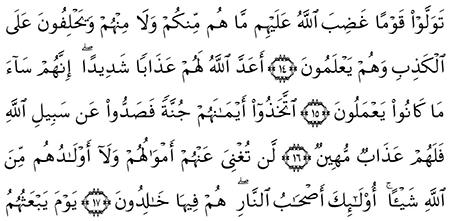 تَوَلَّوْا۟ قَوْمًا غَضِبَ ٱللَّهُ عَلَيْهِم مَّا هُم مِّنكُمْ وَلَا مِنْهُمْ وَيَحْلِفُونَ عَلَى
ٱلْكَذِبِ وَهُمْ يَعْلَمُونَ ﴿١٤﴾ أَعَدَّ ٱللَّهُ لَهُمْ عَذَابًا شَدِيدًا ۖ إِنَّهُمْ سَآءَ
مَا كَانُوا۟ يَعْمَلُونَ ﴿١٥﴾ ٱتَّخَذُوٓا۟ أَيْمَـٰنَهُمْ جُنَّةً فَصَدُّوا۟ عَن سَبِيلِ ٱللَّهِ
فَلَهُمْ عَذَابٌ مُّهِينٌ ﴿١٦﴾ لَّن تُغْنِىَ عَنْهُمْ أَمْوَٰلُهُمْ وَلَآ أَوْلَـٰدُهُم مِّنَ
ٱللَّهِ شَيْـًٔا ۚ أُو۟لَـٰٓئِكَ أَصْحَـٰبُ ٱلنَّارِ ۖ هُمْ فِيهَا خَـٰلِدُونَ ﴿١٧﴾ يَوْمَ يَبْعَثُهُمُ